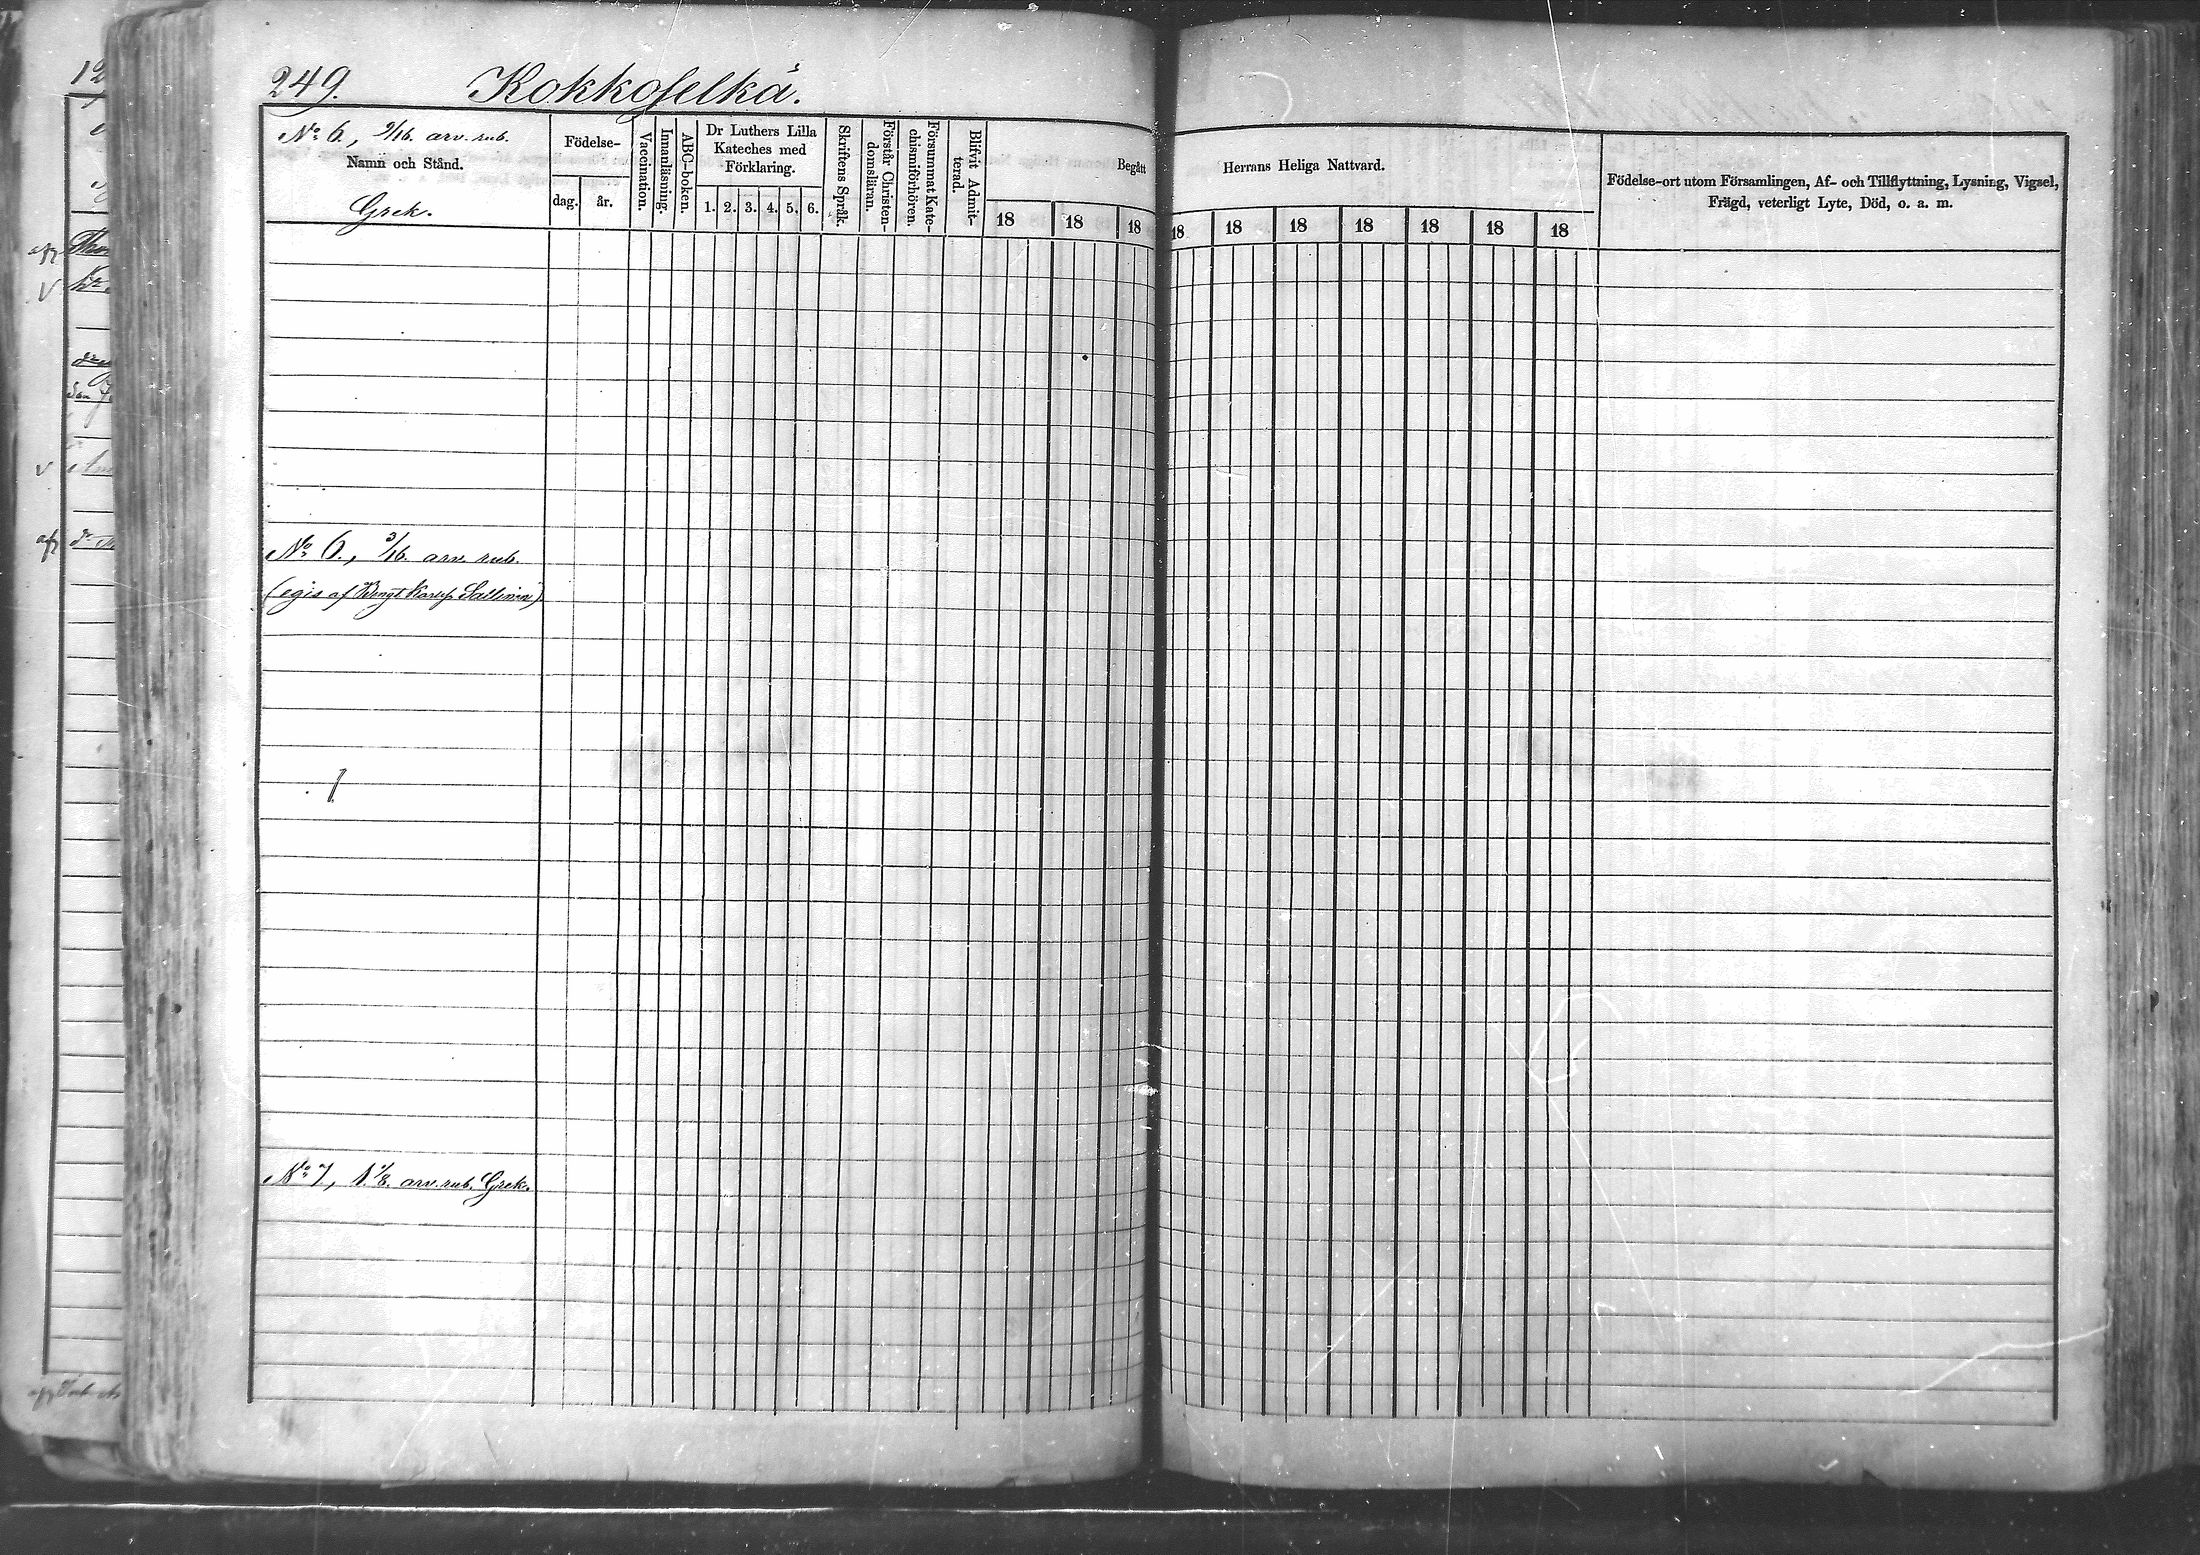 249. Kokkoselkä.
No 6, 9/16. arv. rub.
Namn och Stånd.
Grek.
Födelse-
dag. år.
Vaccination.
Innanläsning.
ABC-boken.
Dr Luthers Lilla
Kateches med
Förklaring.
1. 2. 3. 4. 5. 6.
Skriftens Språk.
Förstår Christen-
domsläran.
Försummat Kate-
chismiförhören.
Blifvit Admit-
terad.
Begått Herrans Heliga Nattvard.
18 18 18 18 18 18 18 18 18 18
Födelse-ort utom Församlingen, Af- och Tillflyttning, Lysning, Vigsel,
Frägd, veterligt Lyte, Död, o. a. m.
No 6., 3/16. arv. rub.
(egis af Bengt Karlsp Sallinen)
No 7, 1 1/8. arv. rub. Grek.